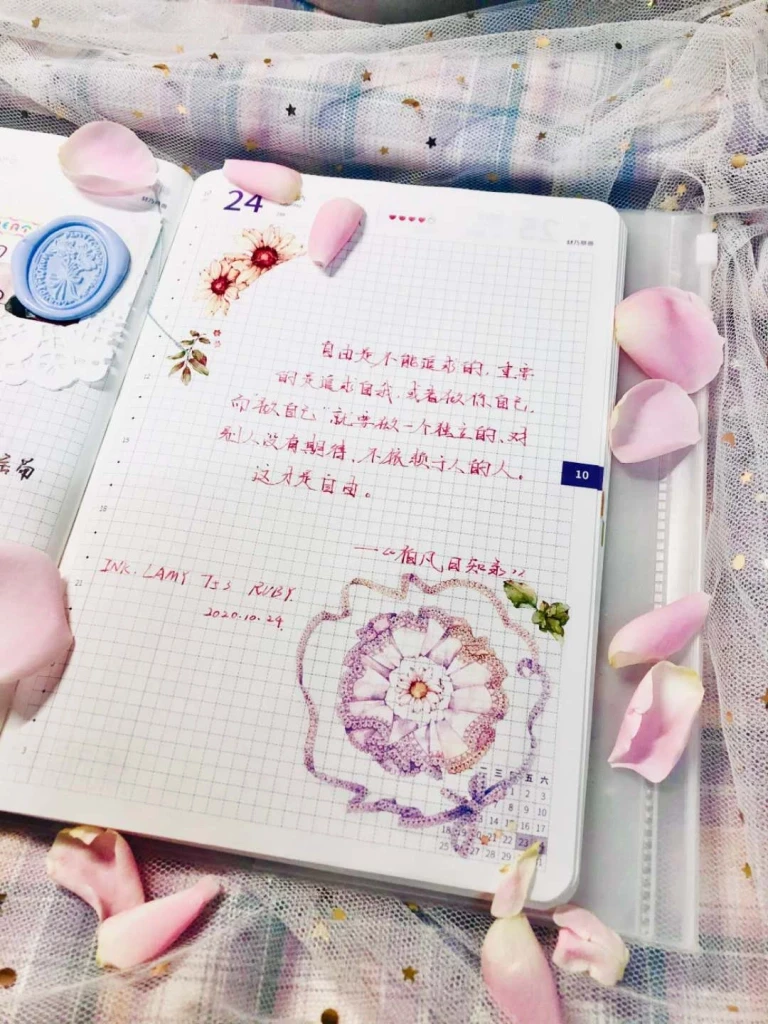 24
自由是不能追求的，重要
的是追求自我，或者做你自己，
而“做自己”就要做一个独立的、对
别人没有期待、不依赖于人的人。
这才是自由。
10
——《梅风日知录》
INK. LAMY T53 RUBY.
2020.10.24.
三 五 六
1 2 3
8 9 10
14 15 16 17
18 20 22 23
25 27 28 29